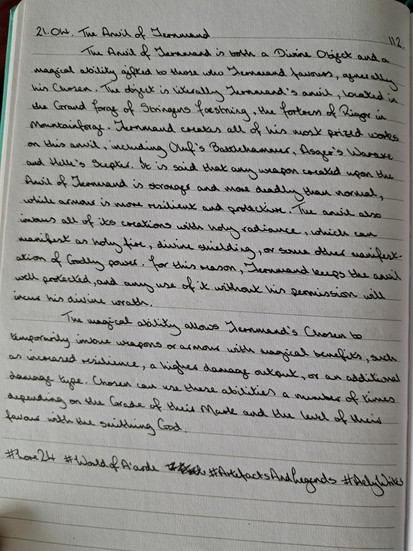 21. Oct. The Anvil of Jernmand
112.
The Anvil of Jernmand is both a Divine Object and a
magical ability gifted to those who Jernmand favours, generally
his Chosen. The object is literally Jernmand's anvil, located in
the Grand Forge of the fortress of in
Mountainforge. Jernmand creates all of his most prized works
on this anvil, including Oluf's Battlehammer, Asger's Waraxe
and Helle's Skepter. It is said that any weapon created upon the
Anvil of Jernmand is stronger and more deadly than normal,
while armour is more resilient and protective. The anvil also
imbues all of its creations with holy radiance, which can
manifest as holy fire, divine shielding, or some other manifest-
ation of Godly power. For this reason, Jernmand keeps the anvil
well protected, and any use of it without his permission will
incur his divine wrath.
The magical ability allows Jernmand's Chosen to
temporarily imbue weapons or armour with magical benefits, such
as increased resilience, a higher damage output, or an additional
damage type. Chosen can use these abilities a number of times
depending on the Grade of their Mark and the level of their
favour with the smithing God.
#Lore24 #WorldofAiarde #ArtefactsAndLegends